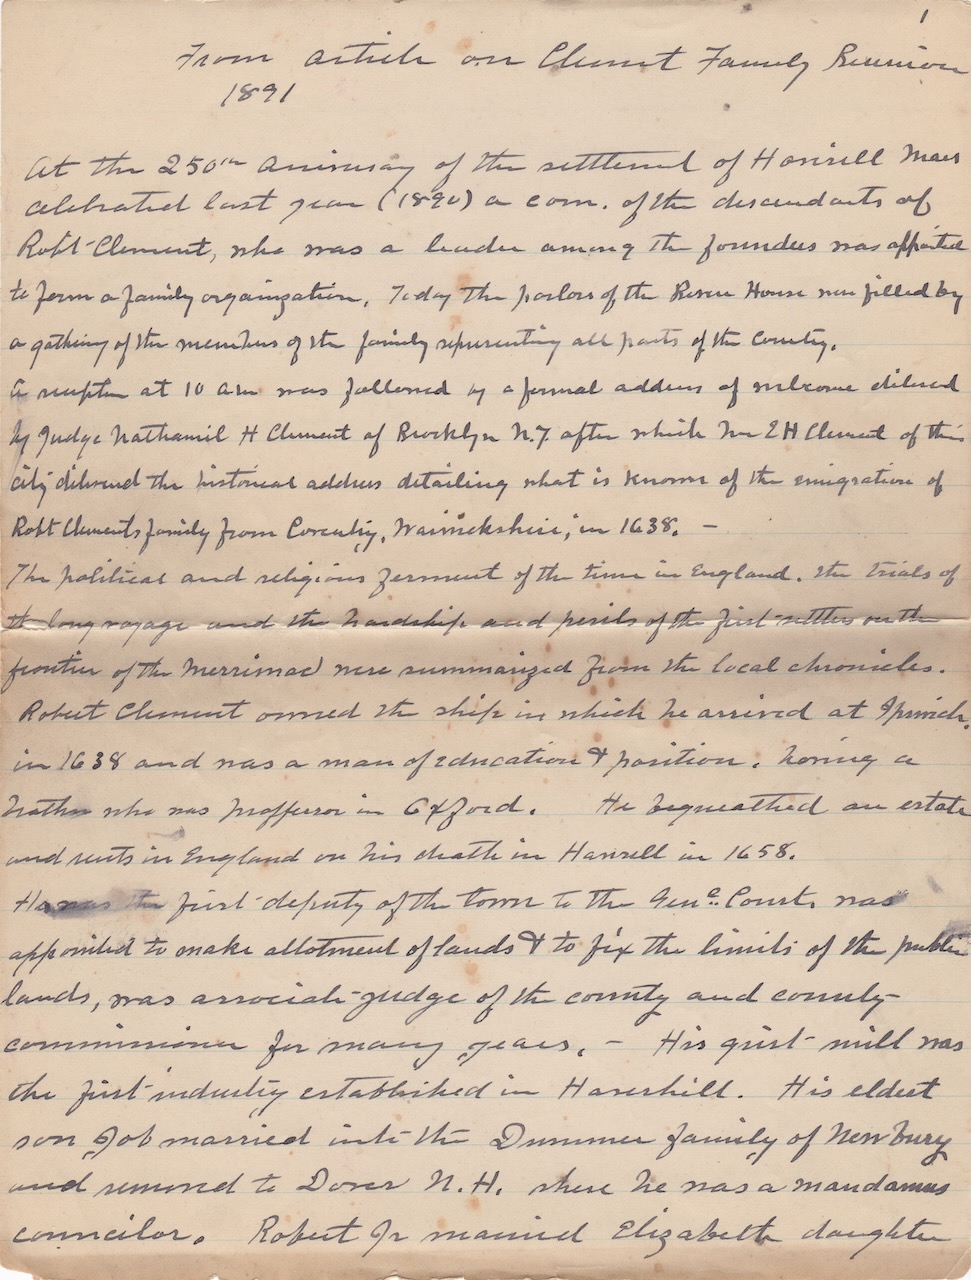 1
From article on Clement Family Reunion
1891
At the 250th aniversay of the settlement of Haverell Mass
celebrated last year (1890) a com. of the descendants of
Robt Clement, who was a leader among the founders was appointed
to form a family organization. Today the parlors of the Revere House were filled by
a gathering of the members of the family representing all parts of the country.
A reception at 10 am was followed by a formal address of welcome delivered
by Judge Nathaniel H Clement of Brooklyn N.Y. after which Mr E H Clement of this
city delivered the historical address detailing what is known of the emigration of
Robt Clements family from Coventry, Warwickshire, in 1638. –
The political and religious ferment of the time in England. the trials of
the long voyage and the hardship and perils of the first settlers on the
frontier of the Merrimac) were summarized from the local chronicles.
Robert Clement owned the ship in which he arrived at Ipswich,
in 1638 and was a man of education & position. having a
who was proffessor in Oxford. He bequeathed an estate
and rents in England on his death in Haverell in 1658.
He was the first deputy of the town to the Genl. Court. was
appointed to make allotment of lands & to fix the limits of the public
lands, was associate judge of the county and county
commissioner for many years. – His grist mill was
the first industry established in Haverhill. His eldest
son Job married into the Dummer family of Newbury
and removed to Dover N.H. where he was a mandamus
councilor. Robert Jr married Elizabeth daughter